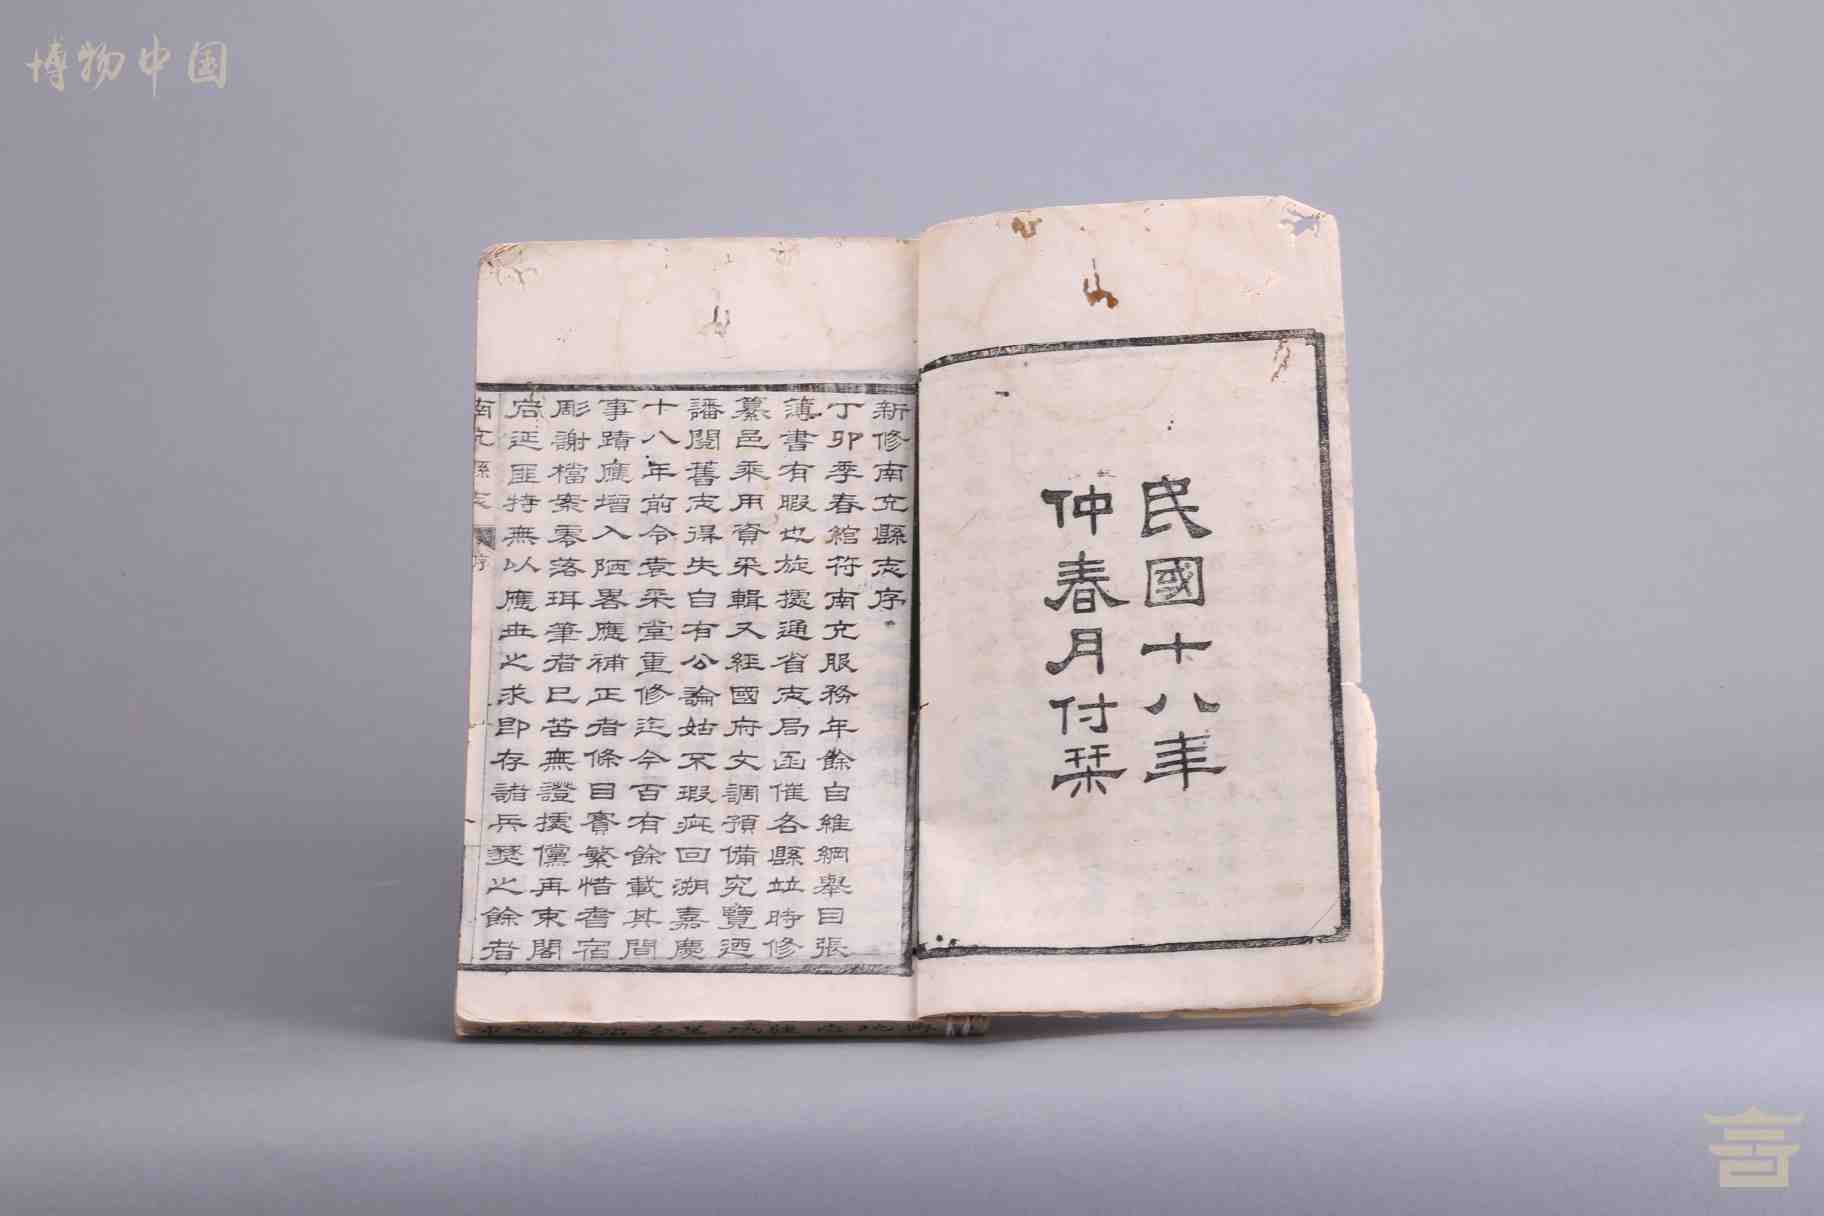 博物中国
民國十八年
仲春月付栞
新修南充縣志序
丁卯季春綰符南充服務年餘自維綱舉目張
簿書有暇也旋據通省志局函催各縣竝時修
纂邑乘用資采輯又經國府文調預備究覽迺
譒閱舊志得失自有公論姑不瑕疵回溯嘉慶
十八年前令袁采堂重修迄今百有餘載其間
事蹟應增入陋畧應補正者條目實繁惜耆宿
彫謝檔案零落珥筆者已苦無證據儻再束閣
宕延匪特無以應世之求即存諸兵燹之餘者
南充縣志
序